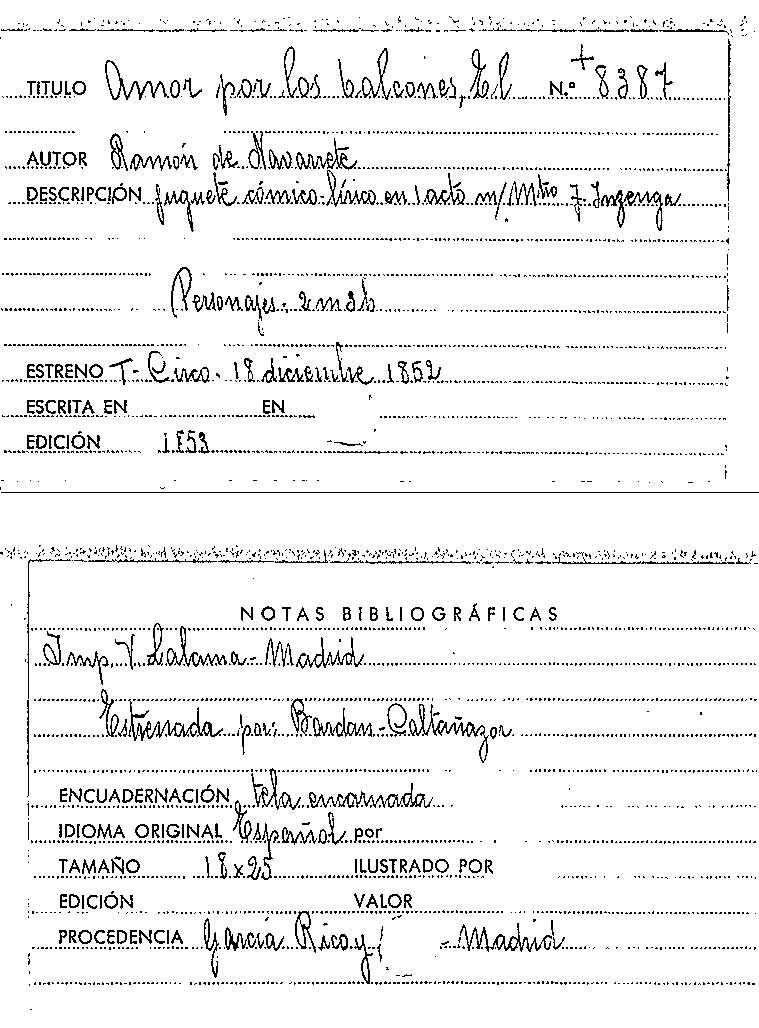 TITULO Amor por los balcones, El N.º +8387
AUTOR Ramón de Navarrete
DESCRIPCIÓN juguete cómico-lírico en 1 acto m/ Mtro J. Inzenga
Personajes. 2m3h
ESTRENO T- Circo. 18 diciembre 1852
ESCRITA EN EN
EDICIÓN 1853
NOTAS BIBLIOGRÁFICAS
Imp. V. Lalama - Madrid
Estrenada por: Bardan-Caltañazor
ENCUADERNACIÓN tela encarnada
IDIOMA ORIGINAL Español por
TAMAÑO 18x25 ILUSTRADO POR
EDICIÓN VALOR
PROCEDENCIA García Rico y - Madrid